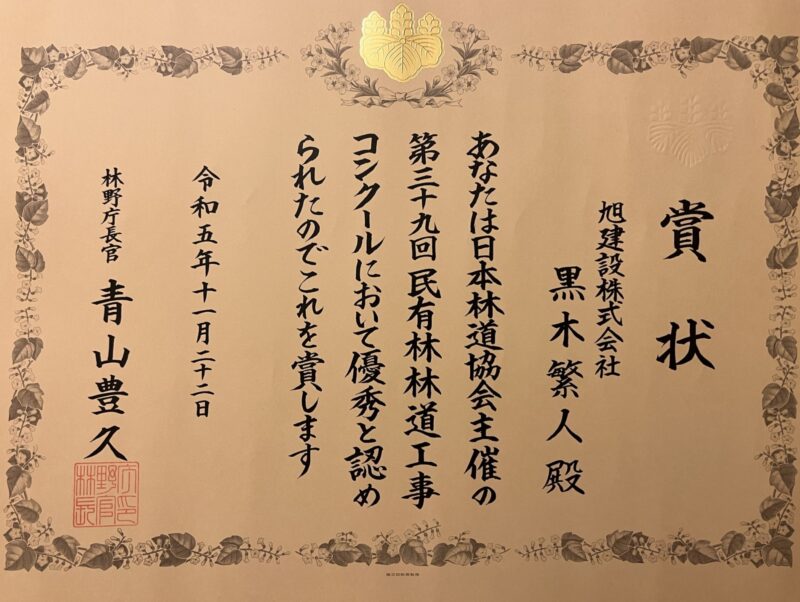 賞状
旭建設株式会社
黒木繁人殿
あなたは日本林道協会主催の
第三十九回民有林林道工事
コンクールにおいて優秀と認め
られたのでこれを賞します
令和五年十一月二十二日
林野庁長官 青山豊久